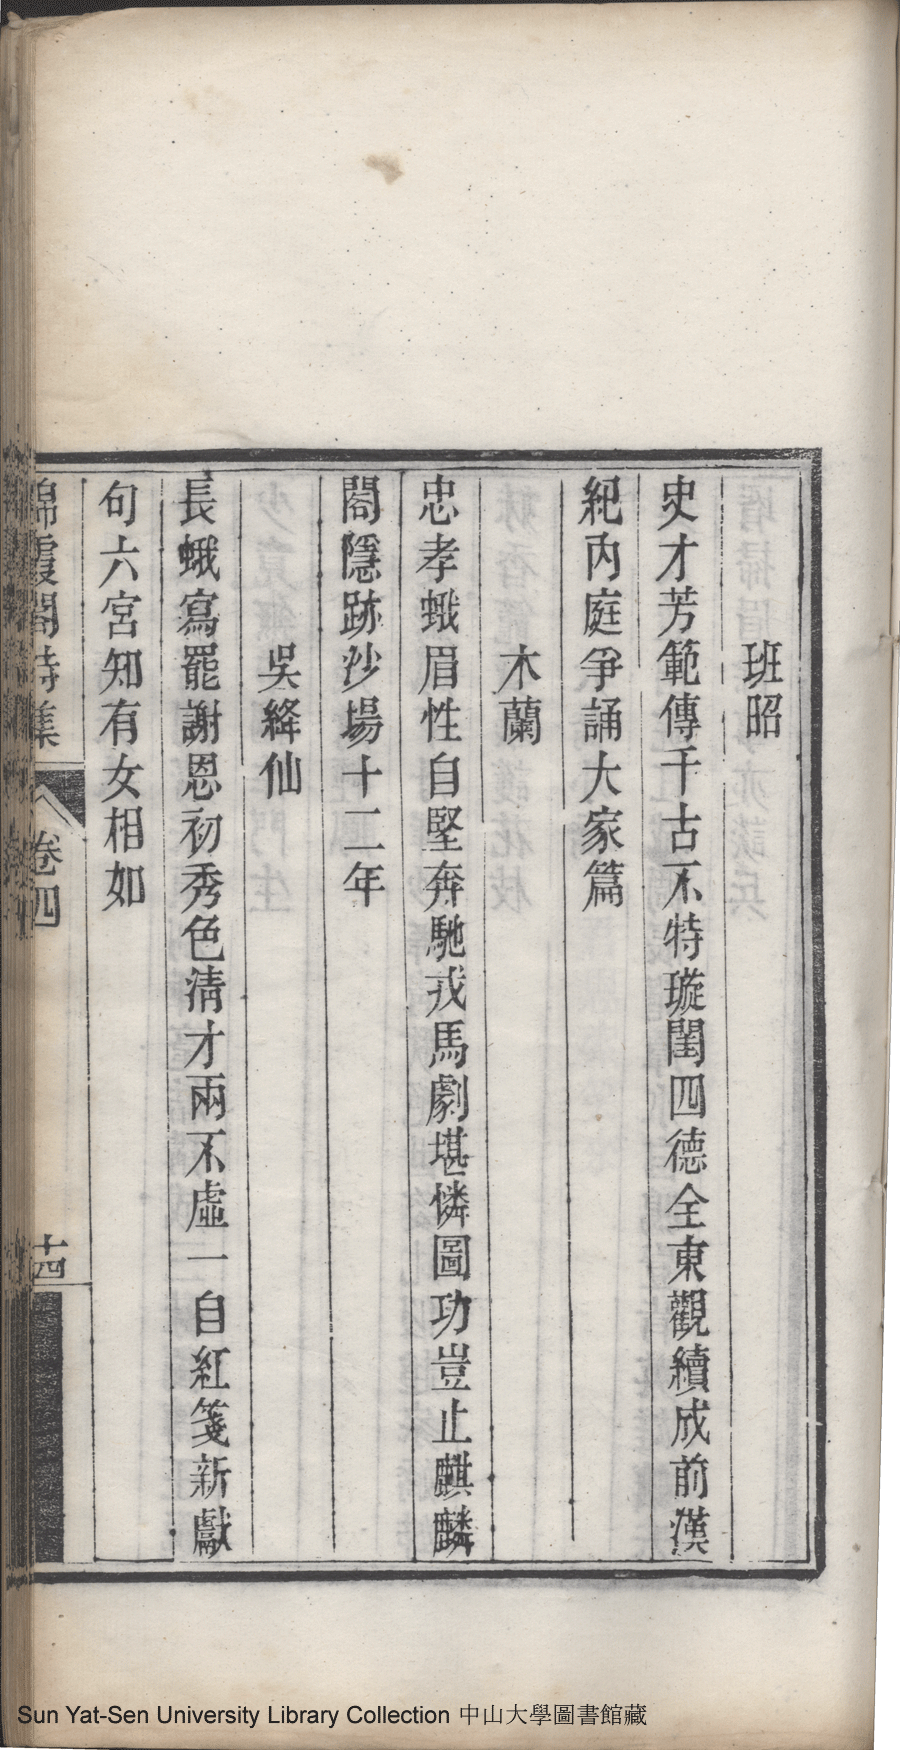 班昭
史才芳範傳千古不特璇閨四德全東觀續成前漢
紀內庭爭誦大家篇
木蘭
忠孝蛾眉性自堅奔馳戎馬劇堪憐圖功豈止麒麟
閣隱跡沙場十二年
吳絳仙
長蛾寫罷謝恩初秀色清才兩不虛一自紅箋新獻
句六宮知有女相如
錦霞閣詩集
卷四
十四
Sun Yat-Sen University Library Collection 中山大學圖書館藏